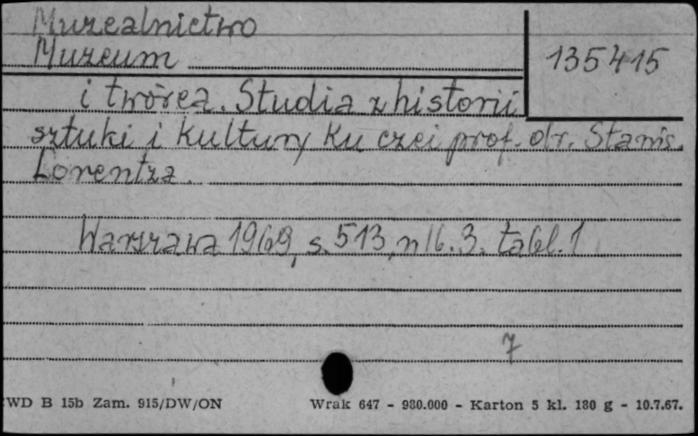 Muzealnictwo
Muzeum
135415
i twórca. Studia z historii
sztuki i kultury ku czci prof. dr. Stanis.
Lorentza.
Warszawa 1969, s. 513, nlb. 3. tabl. 1
7
WD B 15b Zam. 915/DW/ON Wrak 647 - 980.000 - Karton 5 kl. 180 g - 10.7.67.